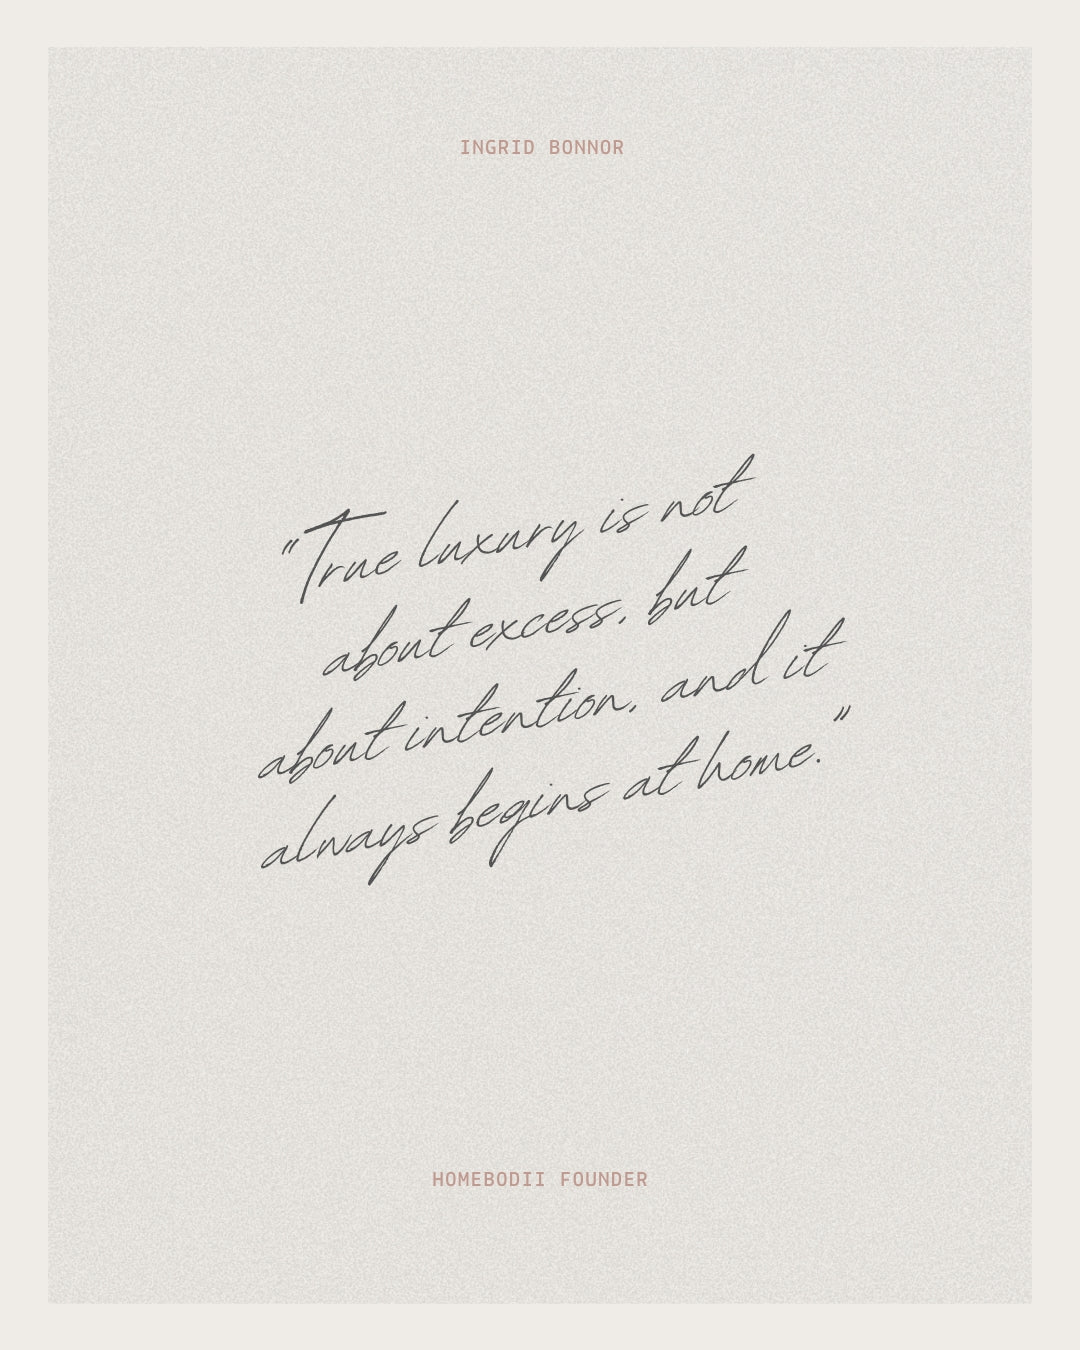 INGRID BONNOR
"True luxury is not
about excess, but
about intention, and it
always begins at home."
HOMEBODII FOUNDER